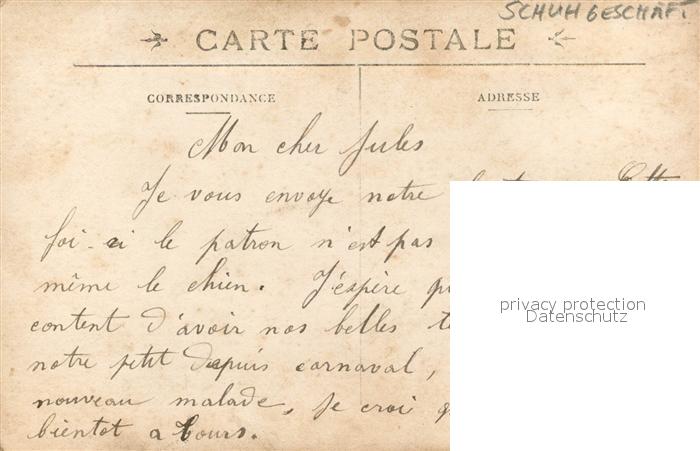 SCHUHGESCHÄFT
CARTE POSTALE
CORRESPONDANCE
ADRESSE
Mon cher Jules
Je vous envoye notre
foi-ci le patron n'est pas
même le chien. J'espère
content d'avoir nos belles
notre petit depuis carnaval,
nouveau malade, je croi
bientot a Tours.
privacy protection
Datenschutz